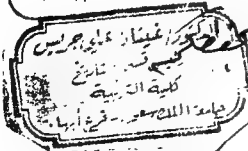 الدكتور غيثان علي جريس
قسم تاريخ
كلية التربية
جامعة الملك سعود - فرع أبها